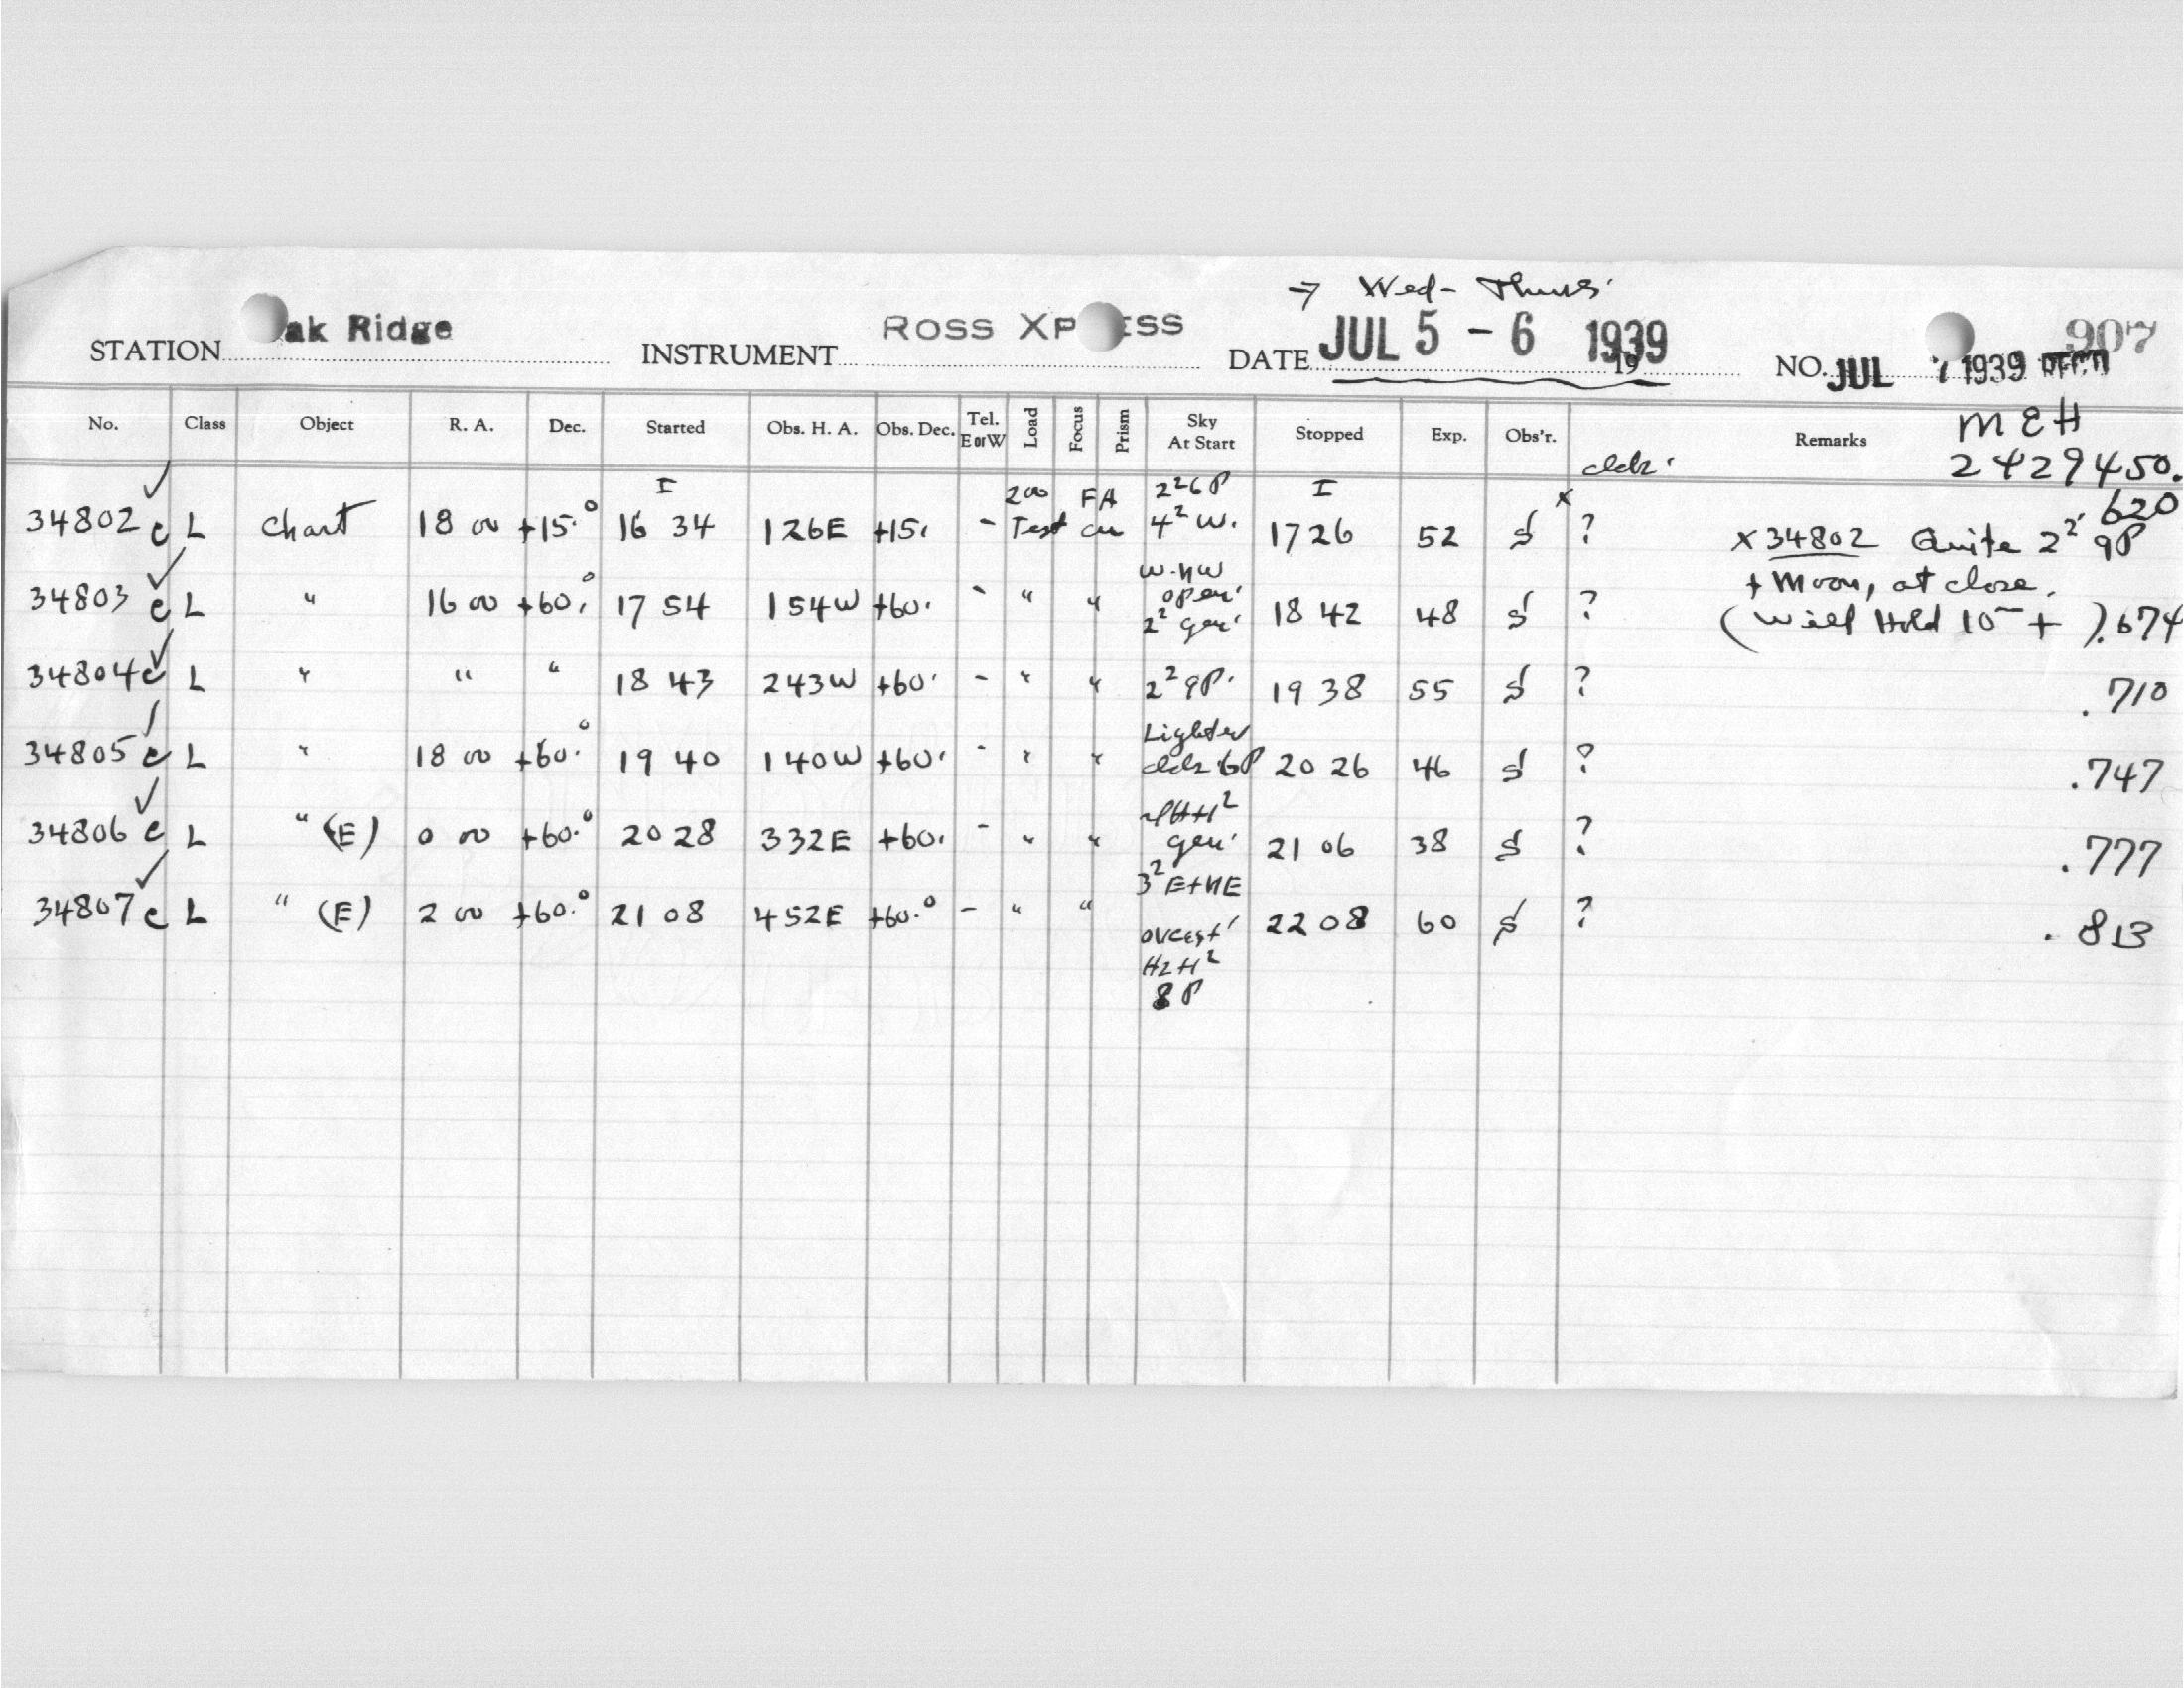 → Wed - Thurs.
STATION ak Ridge INSTRUMENT ROSS XP ESS DATE JUL 5 - 6 1939 19 NO. 907
JUL 1939 REC'D
No. Class Object R. A. Dec. Started Obs. H. A. Obs. Dec. Tel. E or W Load Focus Prism Sky At Start Stopped Exp. Obs'r. Remarks
MEH
2429450.
✓ 34802 c L Chart 18 00 +15.° I 16 34 126E +15. - 200 Test FA 2²6P 4² W. I 17 26 52 S x ? .620
x 34802 Quite 2² 9P
+ Moon, at close.
✓ 34803 c L " 16 00 +60.° 17 54 154W +60. - " " W.NW open. 2² gen. 18 42 48 S ? (Will Hold 10⁻ + ) .674
✓ 34804 c L " " " 18 43 243W +60. - " " 2² 9P. 19 38 55 S ? .710
✓ 34805 c L " 18 00 +60.° 19 40 140W +60. - " " Lighter 6P 20 26 46 S ? .747
✓ 34806 c L " (E) 0 00 +60.° 20 28 332E +60. - " " gen. 21 06 38 S ? .777
✓ 34807 c L " (E) 2 00 +60.° 21 08 452E +60.° - " " 3² E+NE 22 08 60 S ? .813
ovcast.
HZH²
8P